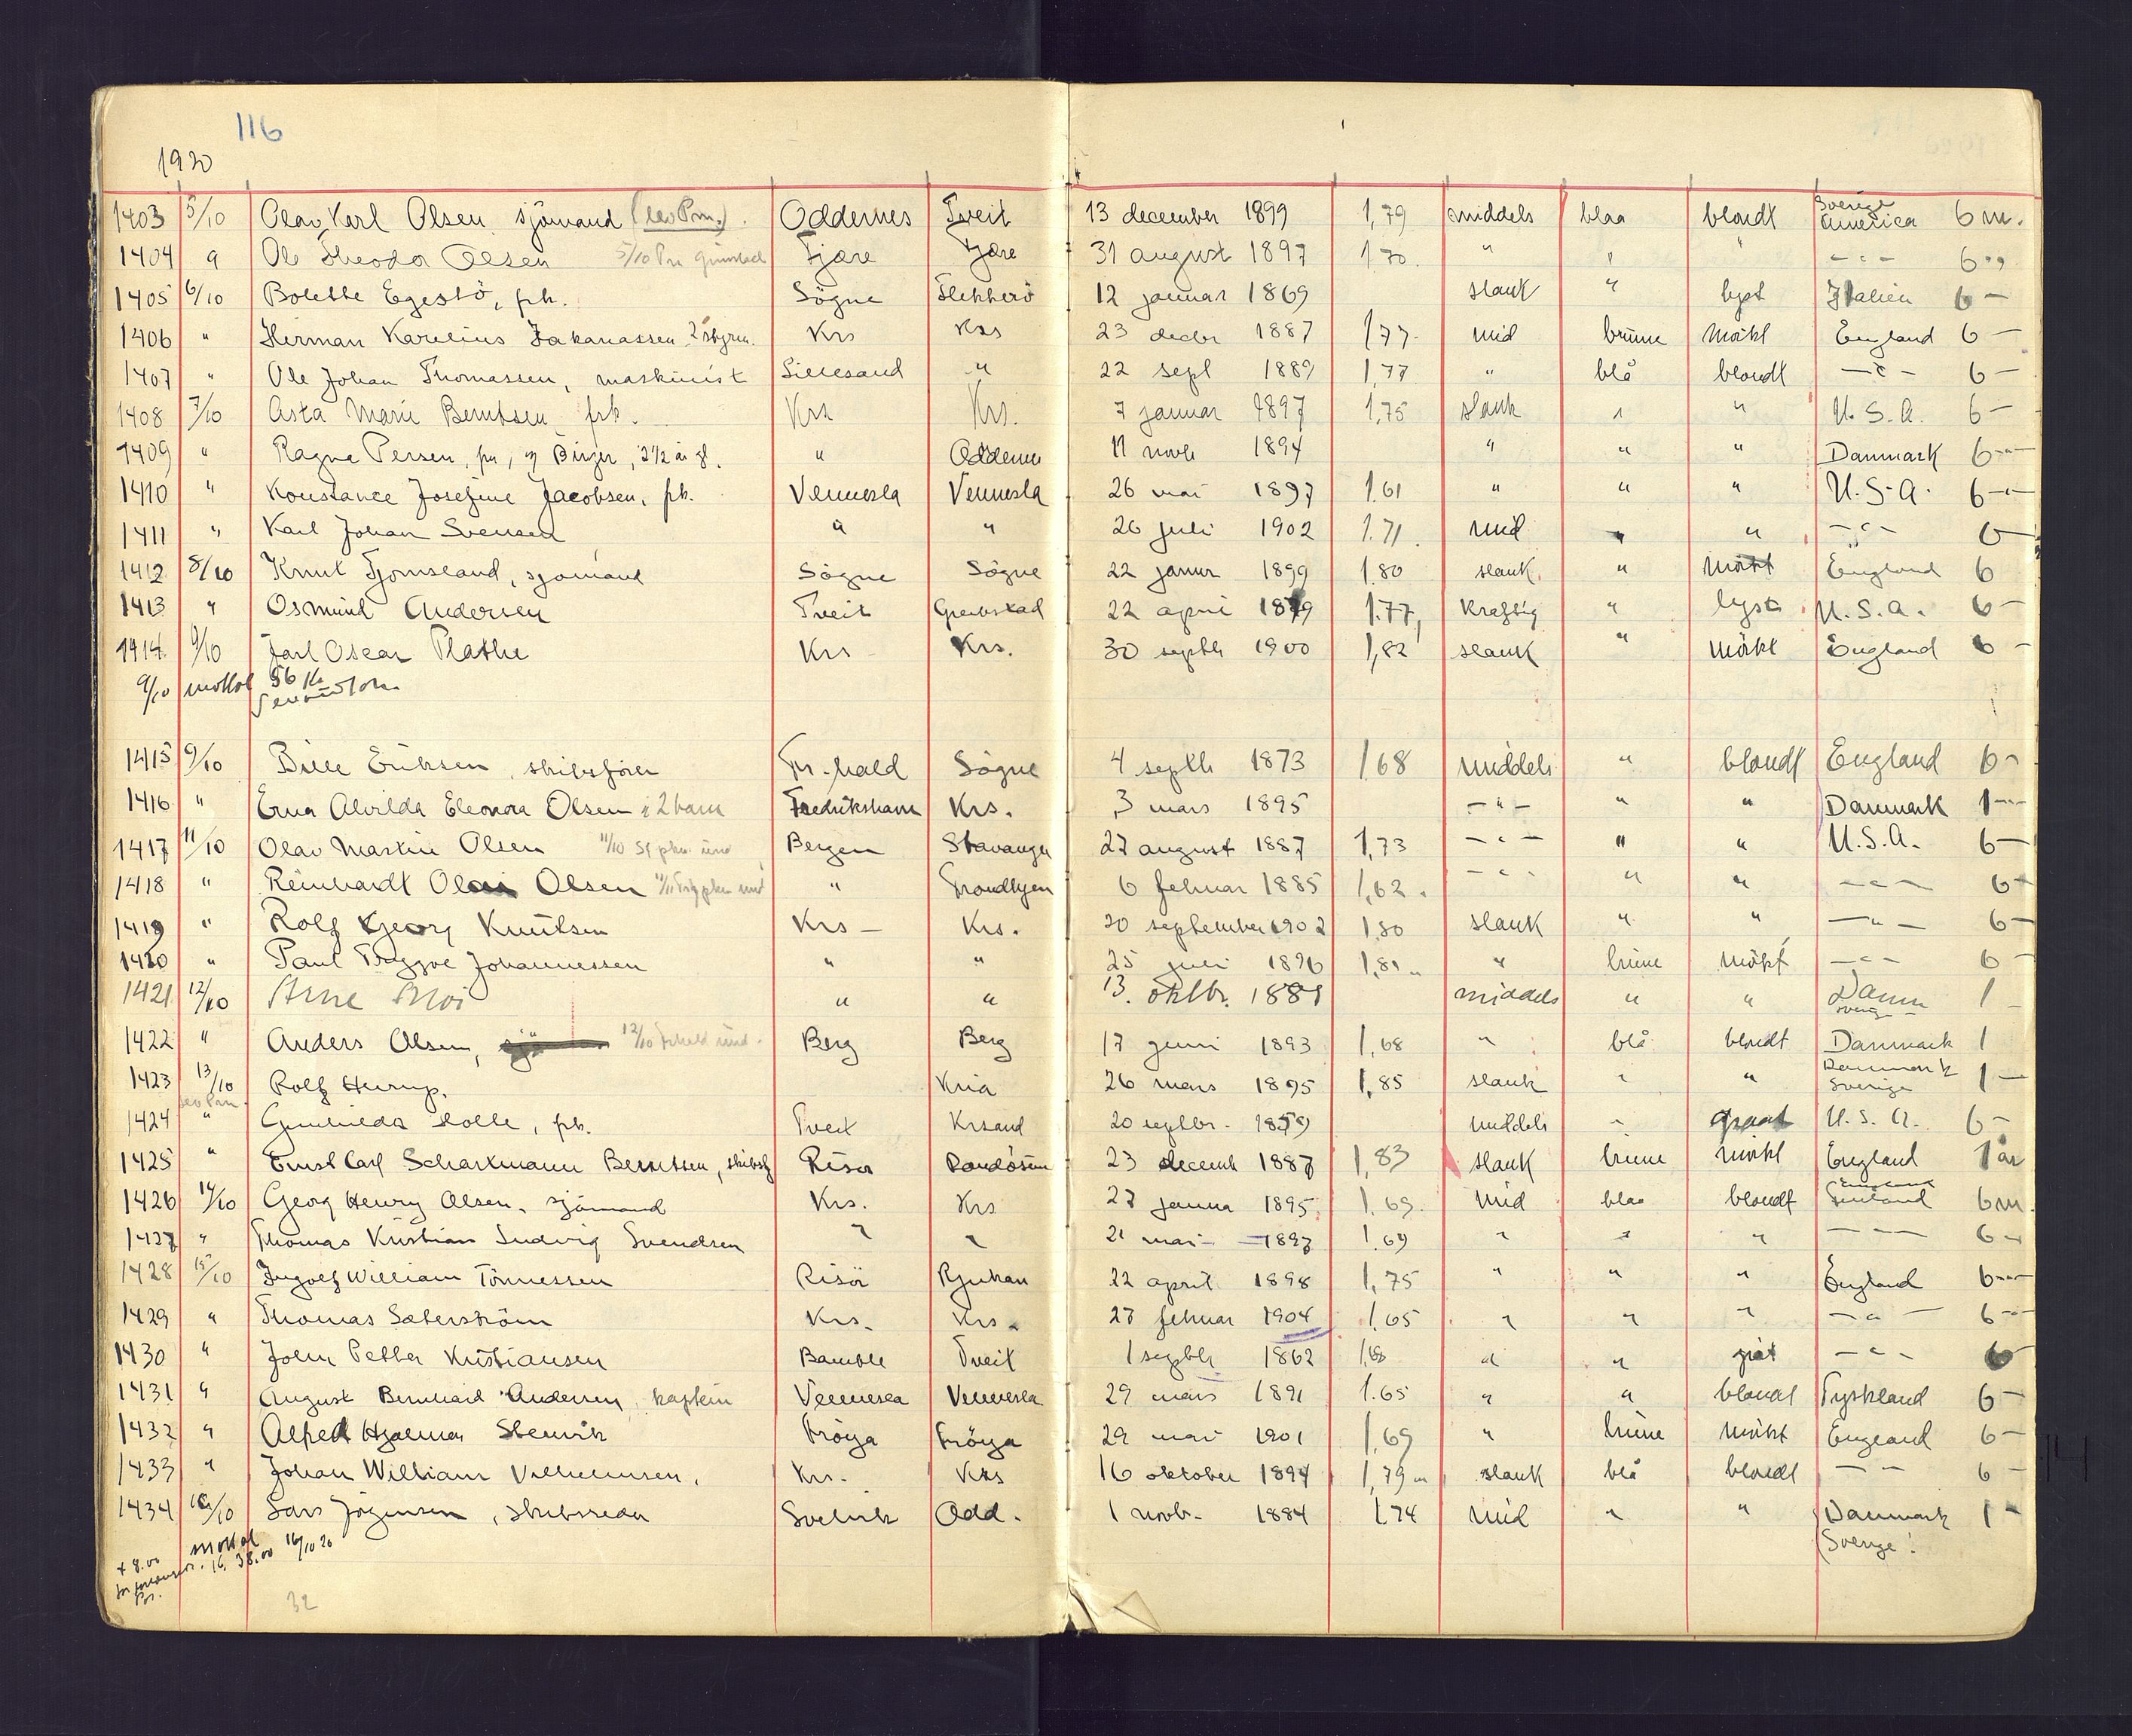 116
1920
1403 5/10 Olav Karl Olsen sjömand (lev Prm.) Oddernes Tveit 13 december 1899 1,79 middels blaa blondt Sverige America 6 m.
1404 " Ole Theodor Olsen 5/10 Grimstad Fjære Fjære 31 august 1897 1.70. " " " -"- 6 "
1405 6/10 Bolette Egestö, frk. Sögne Flekkerö 12 januar 1869 slank " lyst Italien 6 -
1406 " Herman Karelius Zakariassen 2 styrm. Krs Krs 23 decbr 1887 1,77. mid brune mörkt England 6 -
1407 " Ole Johan Thomassen, maskinist Lillesand " 22 sept 1889 1,77 " blå blondt -"- 6 -
1408 7/10 Asta Marie Berntsen frk. Krs Krs. 7 januar 1897 1,75 slank " " U.S.A. 6 -
1409 " Ragna Persen, fru, og Birger, 2 1/2 år gl. " Oddernes 11 novb 1894 " " " Danmark 6 -"-
1410 " Konstance Josefine Jacobsen, frk. Vennesla Vennesla 26 mai 1897 1.61 " " " U.S.A. 6 -"-
1411 " Karl Johan Svensen " " 26 juli 1902 1.71. mid " " -"- 6 -
1412 8/10 Knut Tjomsland, sjömand Sögne Sögne 22 januar 1899 1.80 slank " mörkt England 6
1413 " Osmund Andersen Tveit Grebstad 22 april 1879 1.77, kraftig " lyst U.S.A. 6 -
1414 9/10 Jarl Oscar Plathe Krs Krs. 30 septb 1900 1,82 slank " mörkt England 6 -
9/10 mottat 56 Kr
1415 9/10 Bille Eriksen, skibsförer Fr.hald Sögne 4 septb 1873 1.68 middels " blondt England 6 -
1416 " Erna Alvilda Eleonora Olsen & 2 barn Fredrikshavn Krs. 3 mars 1895 -"- " " Danmark 1 -"-
1417 11/10 Olav Martin Olsen 11/10 Bergen Stavanger 27 august 1887 1,73 -"- " " U.S.A. 6 -
1418 " Reinhardt Olai Olsen " Trondhjem 6 februar 1885 1,62. -"- " " -"- 6 -
1419 " Rolf Georg Knutsen Krs - Krs. 20 september 1902 1.80 slank " " -"- 6 -
1420 " Paul Tryggve Johannessen " " 25 juli 1896 1,81 " " brune mörkt -"- 6 -
1421 12/10 Arne Moi " " 13. oktbr. 1881 middels " " Danm Sverige 1 -
1422 " Anders Olsen, 12/10 Berg Berg 17 juni 1893 1,68 " blå blondt Danmark 1
1423 13/10 Rolf Hurup. Kria 26 mars 1895 1,85 slank " " Danmark Sverige 1 -
1424 " Gunhilda Holle, frk. Tveit Krsand 20 septbr. 1859 middels " graat U.S.A. 6 -
1425 " Ernst Carl Scharxmann Berntsen, skibsf Risör Randösund 23 decemb 1887 1,83 slank brune mörkt England 1 år
1426 14/10 Georg Henry Olsen, sjömand Krs. Krs 27 janua 1895 1.69. mid blaa blondt England 6 m.
1427 " Thomas Kristian Ludvig Svendsen " " 21 mai 1897 1.69 " " " -"- 6 -
1428 15/10 Ingolf William Tönnessen Risör Rjukan 22 april 1898 1,75 " " " England 6 -"-
1429 " Thomas Söterström Krs. Krs. 27 februar 1904 1.65 " " " -"- 6 -"-
1430 " John Petter Kristiansen Bamble Tveit 1 septb 1862 1,68 " " gråt -"- 6 -
1431 " August Bernhard Andersen, kaptein Vennesla Vennesla 29 mars 1891 1.65 " " blondt Tyskland 6 -
1432 " Alfred Hjalmar Stenvik Fröya Fröya 29 mai 1901 1,69 " brune mörkt England 6 -
1433 " Johan William Vilhelmsen. Krs. Krs 16 oktober 1894 1,79 " slank blå blondt -"- 6 -
1434 16/10 Lars Jörgensen, skibsreder Svelvik Odd. 1 novbr. 1884 1.74 mid " " Danmark 1 -
Sverige!
mottat
+ 8.00 16. 38.00 16/10 20
32